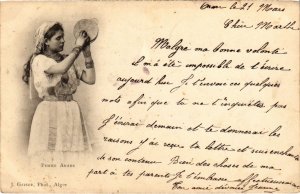 le 21 Mars
Chère Marthe
Malgré ma bonne volonté
il m'a été impossible de t'écrire
aujourd'hui. Je t'envoie ces quelques
mots afin que tu ne t'inquiètes pas
J'écrirai demain et te donnerai les
raisons. J'ai reçu ta lettre et suis enchanté
de son contenu. Bien des choses de ma
part à tes parents Je t'embrasse affectueusement
Ton ami
Femme Arabe
J. Geiser, Phot., Alger